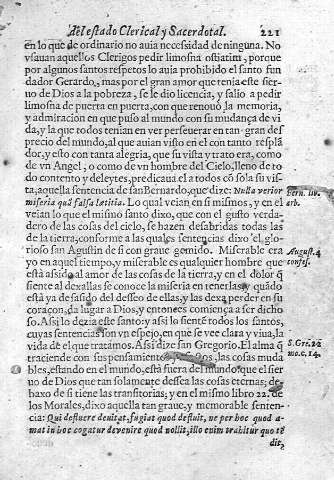 del estado Clerical y Sacerdotal. 221
en lo que de ordinario no auia necessidad de ninguna. No
vsauan aquellos Clerigos pedir limosna ostiatim, porque
por algunos santos respetos lo auia prohibido el santo fun
dador Gerardo, mas por el gran amor que tenia este sier-
uo de Dios a la pobreza, se le dio licencia, y salio a pedir
limosna de puerta en puerta, con que renouò la memoria,
y admiracion en que puso al mundo con su mudança de vi
da, y la que todos tenian en ver perseuerar en tan gran des
precio del mundo, al que auian visto en el con tanto respla
dor, y esto con tanta alegria, que su vista y trato era, como
de vn Angel, o como de vn hombre del Cielo, lleno de to
do contento y deleytes, predicaua el a todos cō sola su vis-
ta, aquella sentencia de san Bernardo, que dize: Nulla verior
miseria quā falsa lætitia. Lo qual veian en si mismos, y en el
Bern. lib.
arb.
veian lo que el mismo santo dixo, que con el gusto verda-
dero de las cosas del cielo, se hazen desabridas todas las
de la tierra, conforme a las quales sentencias dixo el glo-
rioso san Agustin de si con graue gemido. Miserable era
August. 4
confes.
yo en aquel tiempo, y miserable es qualquier hombre que
està assido al amor de las cosas de la tierra, y en el dolor q̄
siente al dexallas se conoce la miseria en tenerlas, y quādo
està ya desasido del desseo de ellas, y las dexa perder en su
coraçon, da lugar a Dios, y entonces comiença a ser dicho
so. Assi lo dezia este santo: y assi lo siente todos los santos,
cuyas sentencias son vn espejo, en que se vee clara y viua, la
vida de el que tratamos. Assi dize san Gregorio. El alma q̄
S. Gre. 22
mo. c. 14.
traciende con sus pensamientos Dios, las cosas muda
bles, estando en el mundo, està fuera del mundo: que el sier
uo de Dios que tan solamente dessea las cosas eternas; de-
baxo de si tiene las transitorias; y en el mismo libro 22. de
los Morales, dixo aquella tan graue, y memorable senten-
cia: Qui defluere deuitat, fugiat quod defluit, ne per hoc quod a-
mat in hoc cogatur deuenire quod nollit, illo enim trahitur quo te
dit,